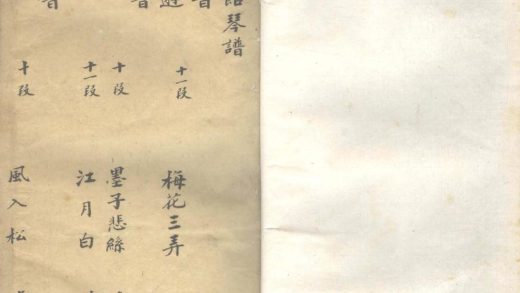 琴譜
音
十一段 梅花三弄
音
十段 墨子悲絲
十一段 江月白
音
十段 風入松